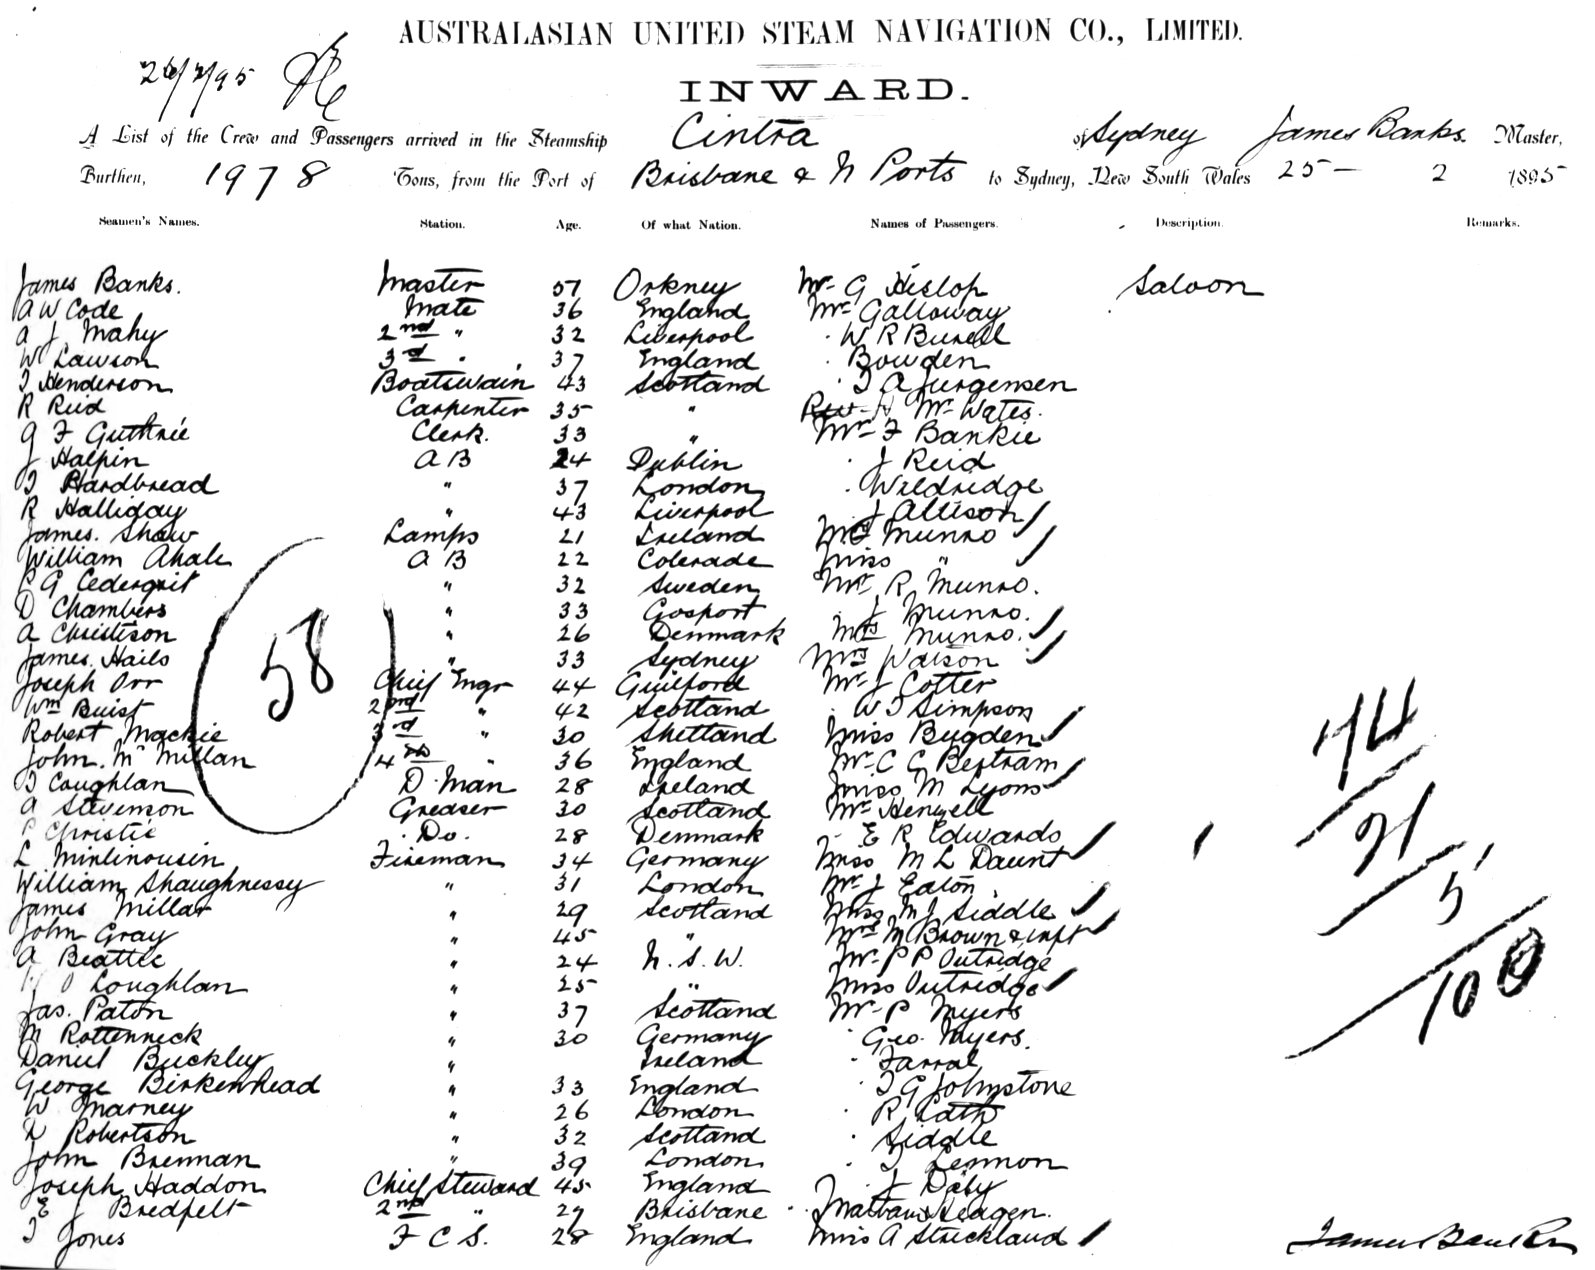 AUSTRALASIAN UNITED STEAM NAVIGATION CO., LIMITED.
26/2/95
INWARD.
A List of the Crew and Passengers arrived in the Steamship Cintra of Sydney James Banks. Master,
Burthen, 1978 Tons, from the Port of Brisbane & N Ports to Sydney, New South Wales 25 - 2 1895
Seamen's Names. Station. Age. Of what Nation. Names of Passengers. Description. Remarks.
James Banks. Master 57 Orkney Mr G Hislop Saloon
A W Code Mate 36 England Mr Galloway
A J Mahy 2nd " 32 Liverpool W R Burell
W Lawson 3d " 37 England Bowden
T Henderson Boatswain 43 Scotland T A Jurgensen
R Reid Carpenter 35 " H Mc Wates.
G F Guthrie Clerk. 33 " Mr F Bankie
J Halpin A B 24 Dublin J Reid
T Hardbread " 37 London Wildridge
R Halliday " 43 Liverpool J Allison
James. Shaw Lamps 21 Ireland Mrs Munro
William Ahale A B 22 Colorado Miss "
P G Cederqvit " 32 Sweden Mr R Munro.
D Chambers " 33 Gosport J Munro.
A Christison " 26 Denmark Mrs Munro.
James. Hails " 33 Sydney Mrs Watson
Joseph Orr Chief Engr 44 Guilford Mr J Cotter
Wm Buist 2nd " 42 Scotland W T Simpson
Robert Mackie 3rd " 30 Shetland Miss Bugden
John. Mc Millan 4th " 36 England Mr C C Bertram
T Coughlan D. Man 28 Ireland Miss M Lyons
A Stevenson Greaser 30 Scotland Mr Henzell
P Christie Do. 28 Denmark E R Edwards
L Minlinousin Fireman 34 Germany Miss M L Daunt
William Shaughnessy " 31 London Mr J Eaton
James Millar " 29 Scotland Miss M J Siddle
John Gray " 45 " Mrs M Brown & inft
A Beattie " 24 N. S. W. Mr P P Outridge
O Loughlan " 25 " Miss Outridge
Jas. Paton " 37 Scotland Mr P Myers
M Rottenneck " 30 Germany Geo. Myers.
Daniel Buckley " Ireland Farral
George Birkenhead " 33 England T G Johnstone
W Marney " 26 London R Lath
Robertson " 32 Scotland Siddle
John Brennan " 39 London T Lennon
Joseph Haddon Chief Steward 45 England J Daly
E J Bredfelt 2nd " 29 Brisbane
T Jones F C S. 28 England Miss A Strickland
58
74
21
5
100
James Banks